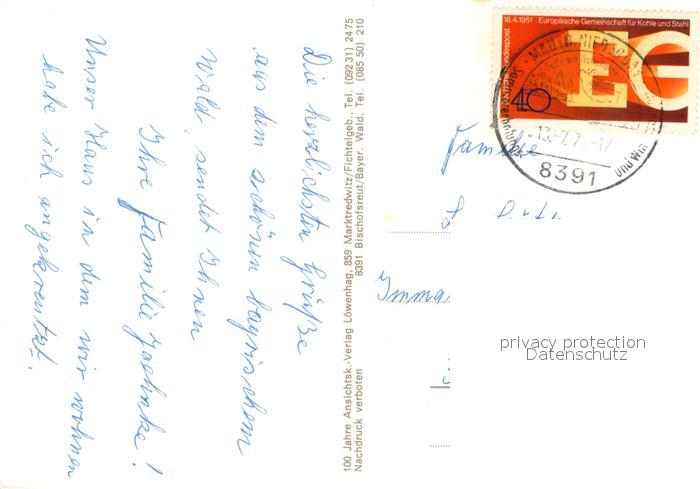 Die herzlichsten Grüße
aus dem schönen bayrischem
Wald, sendet Ihnen
Ihre Familie Jaehnke!
Unser Haus in dem wir wohnen
habe ich angekreutzt.
100 Jahre Ansichtsk.-Verlag Löwenhag, 859 Marktredwitz/Fichtelgeb. Tel. (09231) 2475
8391 Bischofsreut/Bayer. Wald. Tel. (08550) 210
Nachdruck verboten
18.4.1951 Europäische Gemeinschaft für Kohle und Stahl
Deutsche Bundespost
EG
40
MAUTH
13.-7.7 -17
und Win
8391
Familie
Imma
privacy protection
Datenschutz